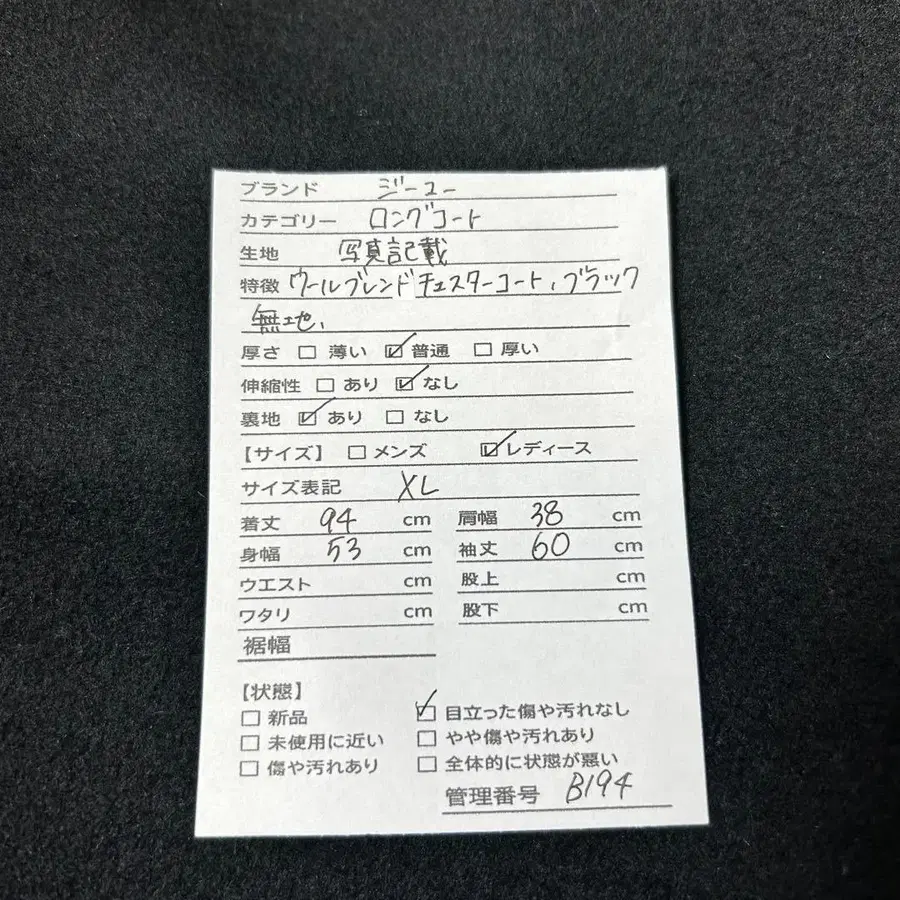 ブランド ジーユー
カテゴリー ロングコート
生地 写真記載
特徴 ウールブレンドチェスターコート、ブラック
無地、
厚さ □ 薄い ☑ 普通 □ 厚い
伸縮性 □ あり ☑ なし
裏地 ☑ あり □ なし
【サイズ】 □ メンズ ☑ レディース
サイズ表記 XL
着丈 94 cm 肩幅 38 cm
身幅 53 cm 袖丈 60 cm
ウエスト cm 股上 cm
ワタリ cm 股下 cm
裾幅
【状態】
□ 新品 ☑ 目立った傷や汚れなし
□ 未使用に近い □ やや傷や汚れあり
□ 傷や汚れあり □ 全体的に状態が悪い
管理番号 B194